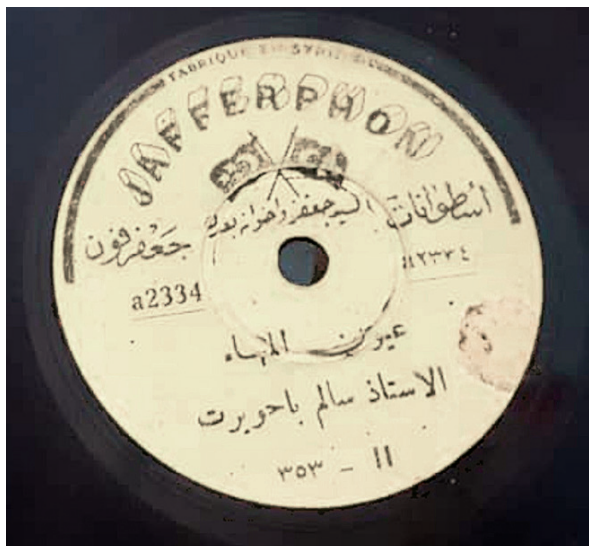 FABRIQUE EN SYRIE
JAFFERPHON
اسطوانات
السيد جعفر واخوانه بعدن
جعفرفون
a2334
a٢٣٣٤
عيون المهاء
الاستاذ سالم باحويرث
٣٥٣ - II